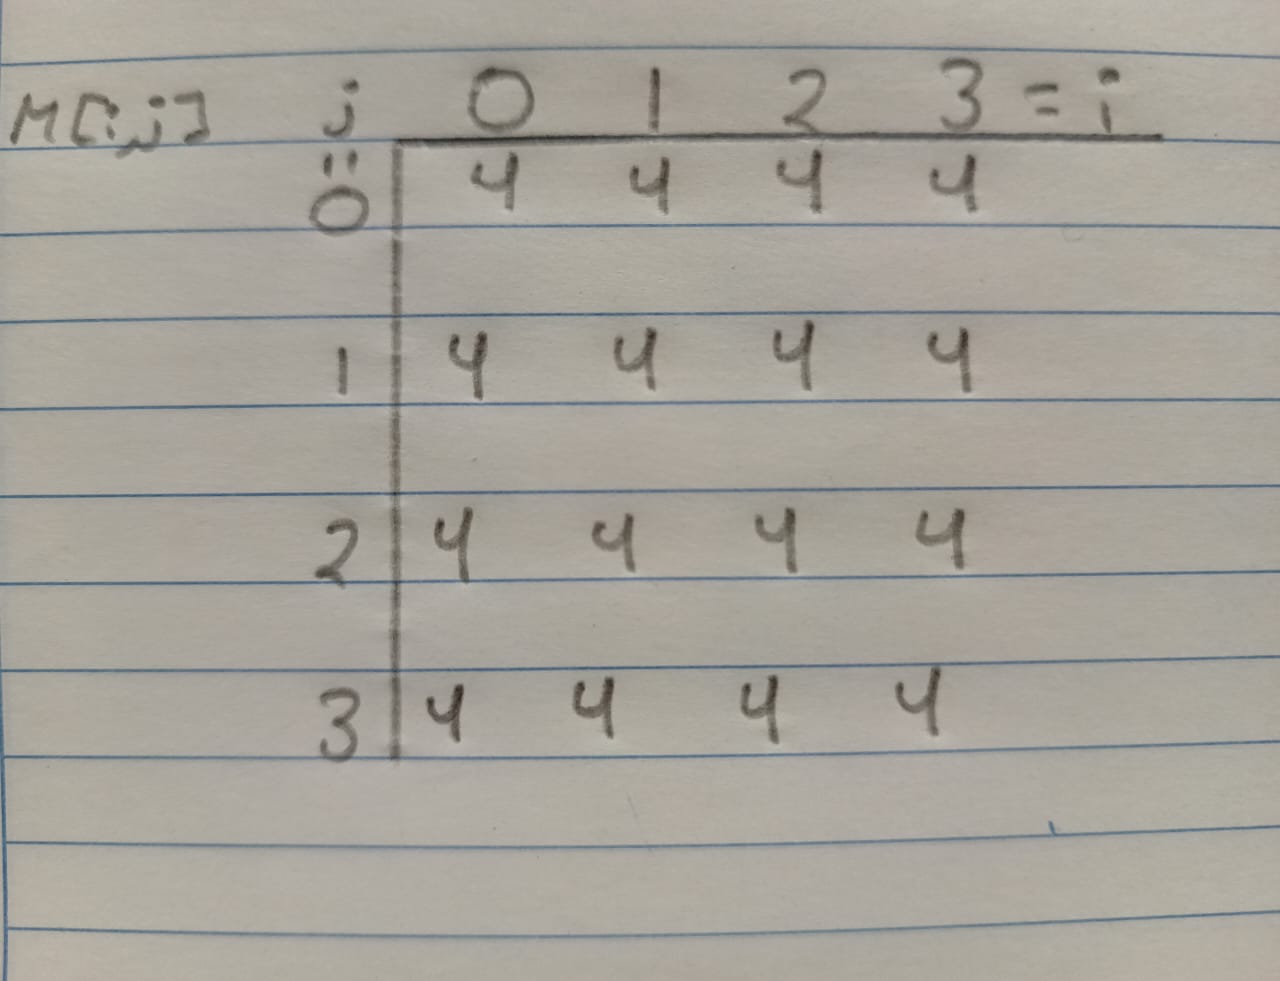 M[i,j] j 0 1 2 3 = i
=
0 4 4 4 4
1 4 4 4 4
2 4 4 4 4
3 4 4 4 4